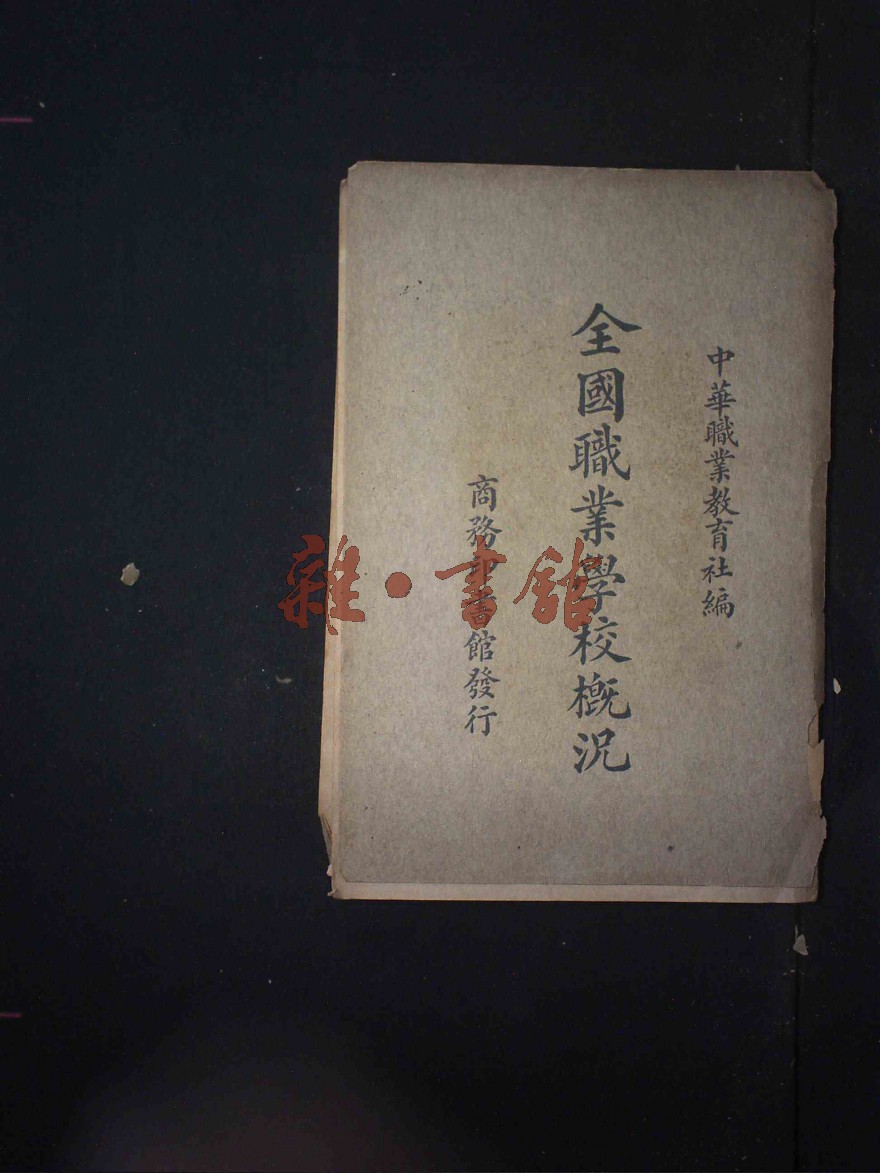 中華職業教育社編
全國職業學校概况
商務印書館發行
雜·書館